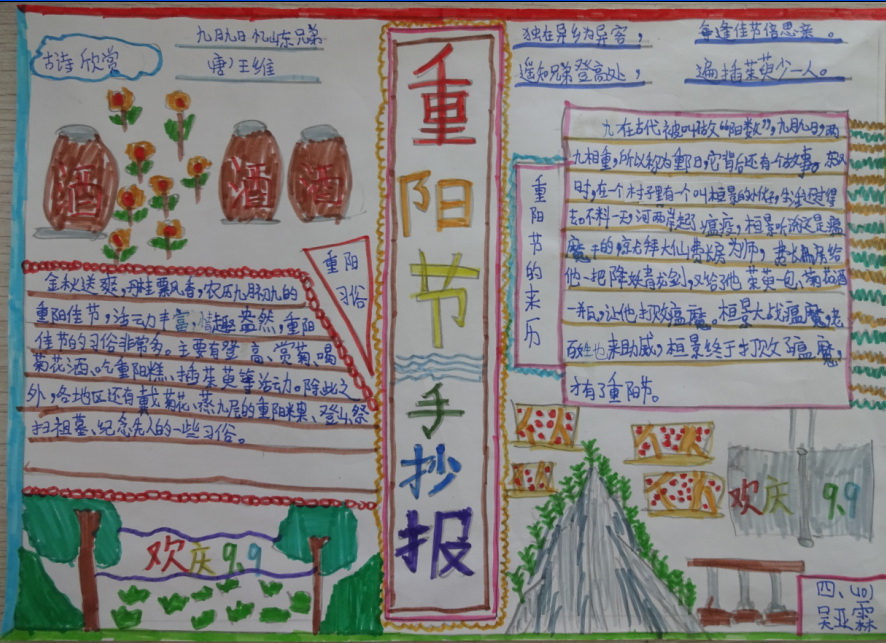 古诗欣赏
九月九日忆山东兄弟
(唐)王维
独在异乡为异客，
每逢佳节倍思亲。
遥知兄弟登高处，
遍插茱萸少一人。
酒
酒
酒
重阳习俗
金秋送爽，丹桂飘香，农历九月初九的
重阳佳节，活动丰富，情趣盎然，重阳
佳节的习俗非常多。主要有登高、赏菊、喝
菊花酒、吃重阳糕、插茱萸等活动。除此之
外，各地区还有戴菊花、蒸九层的重阳米果、登山祭
扫祖墓、纪念先人的一些习俗。
欢庆9.9
重阳节手抄报
重阳节的来历
九在古代被叫做“阳数”，九月九日，两
九相重，所以称为重阳日，它背后还有个故事。
时，在一个村子里有个叫桓景的
去。不料一天河两岸起了瘟疫，桓景听说这是瘟
魔干的，拜大仙费长房为师，费长房给
他一把降妖青龙剑，又给了他茱萸一包，菊花酒
一并日，让他打败瘟魔。桓景大战瘟魔，老
百姓也来助威，桓景终于打败了瘟魔，
才有了重阳节。
欢庆 9.9
四、(10)
吴亚霖